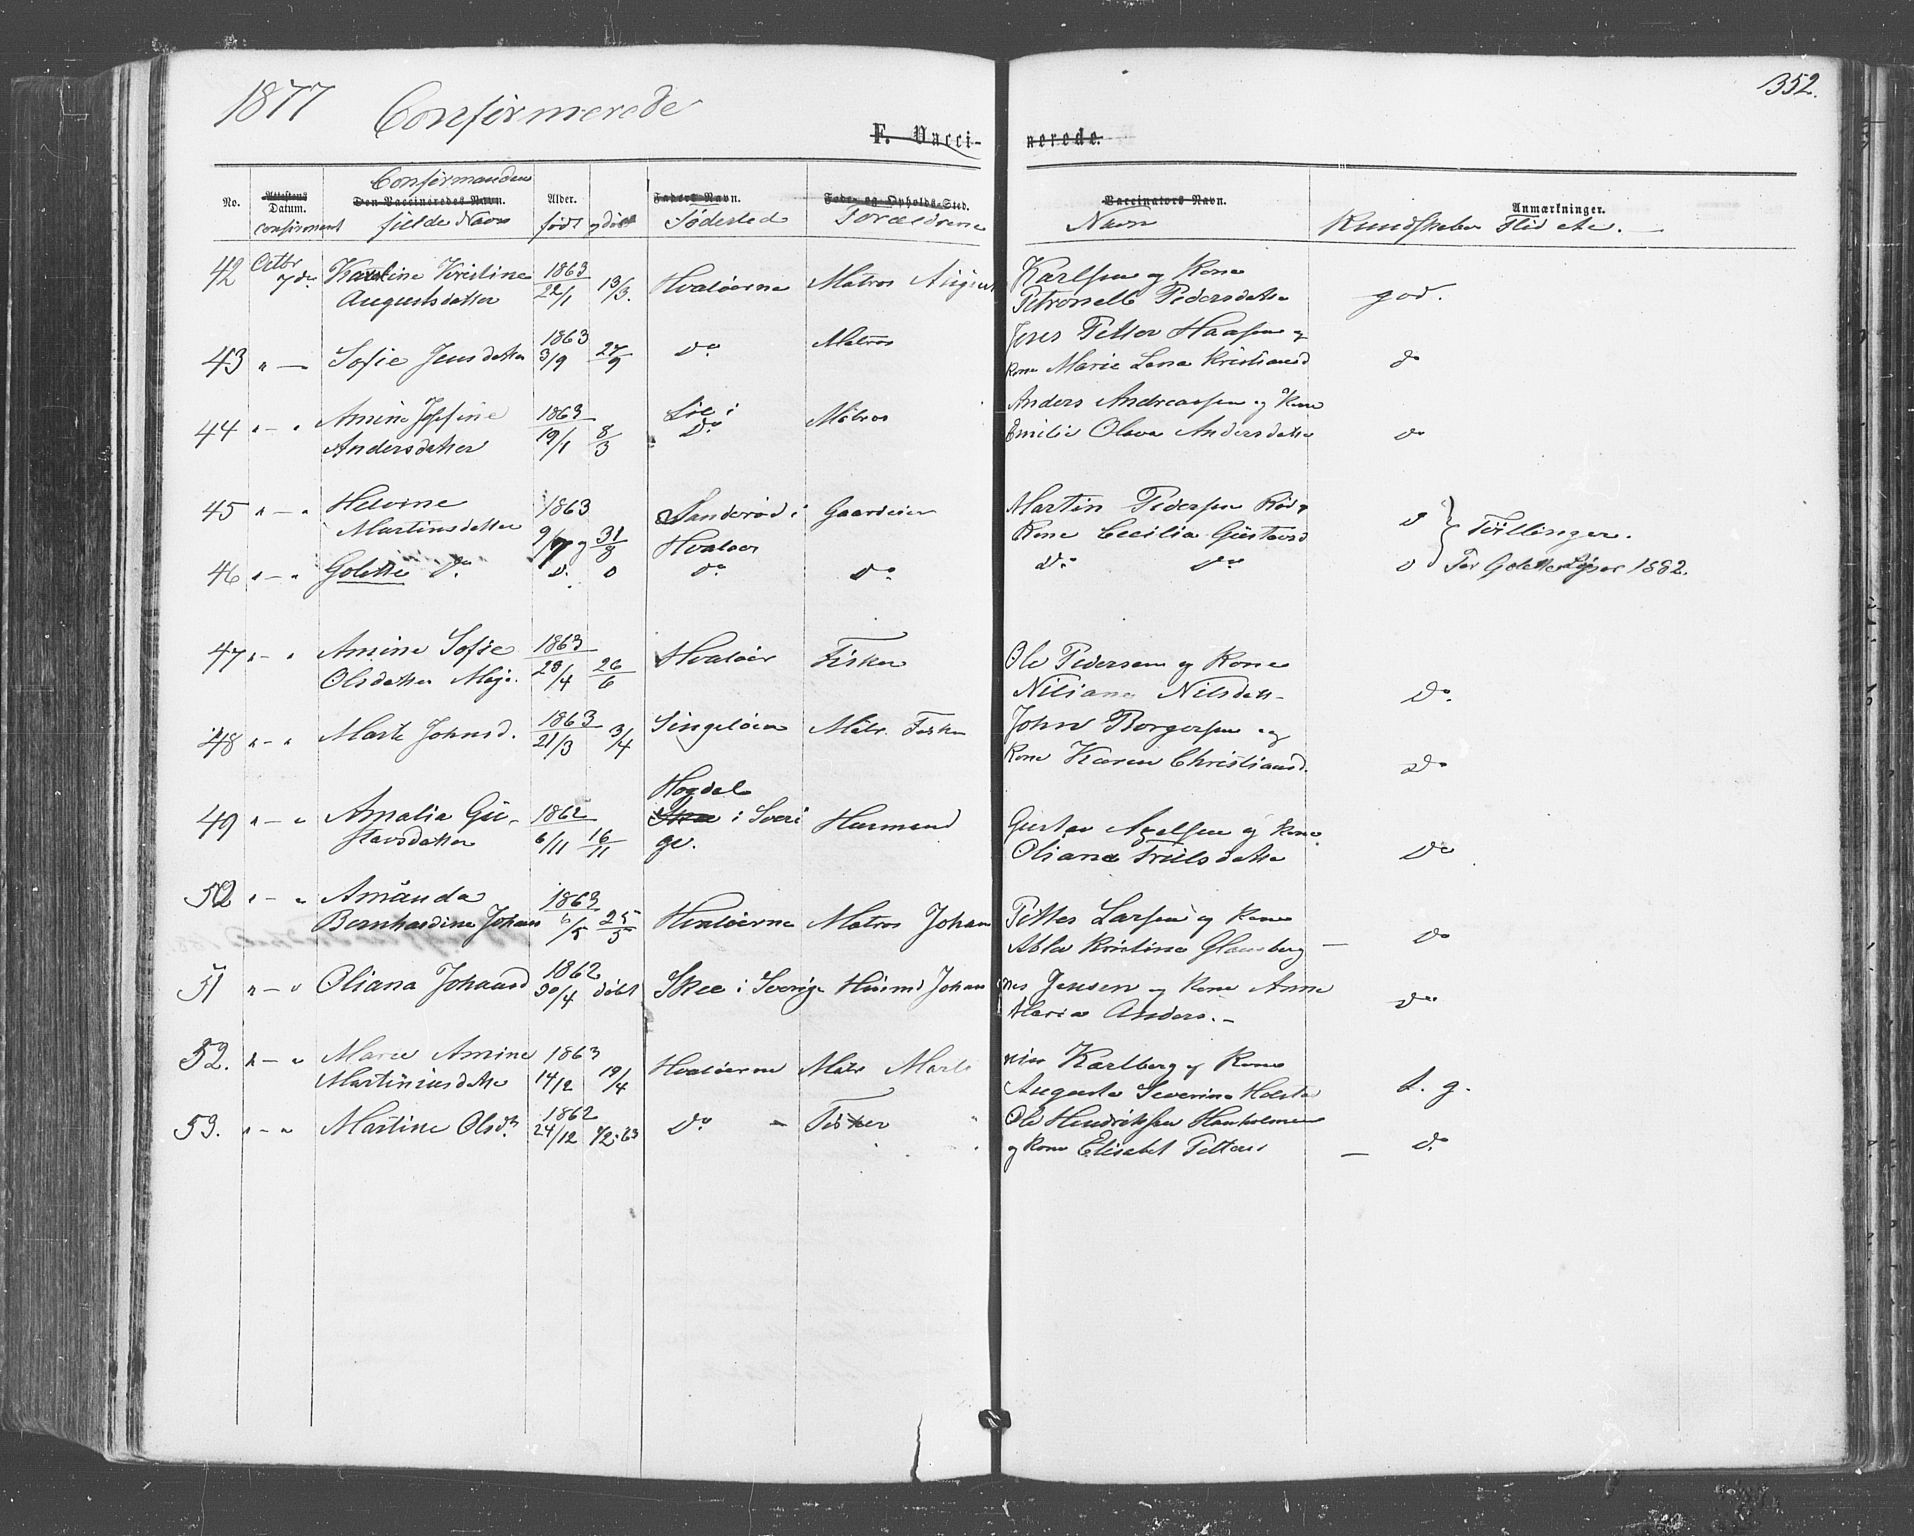 1877 Confirmerede
352.
F. Vacci- nerede.
No. Attestens Datum. confirmeret
Confirmandens
Den Vaccineredes Navn. fulde Navn
Alder. født og døbt
Faders Navn. Fødested
Føde- og Opholds-Sted. Forældrene
Vaccinators Navn. Navn
Kundskaber Flid etc.
Anmærkninger.
42 Octbr 7de Karoline Kristine 1863 22/1 13/3. Hvaløerne Matros August Karlsen og Kone
Augustsdatter Petronelle Pedersdatter god.
43 " — Sofie Jensdatter 1863 3/9 27/9 do Matros Jens Petter Haasen og
Kone Marie Lena Kristiansd do
44 " - " Amine Josefine 1863 19/1 8/3 i do Matros Anders Andreassen og Kone
Andersdatter Emilie Olava Andersdatter do
45 " - " Helvine 1863 Sanderød i Gaardeier Martin Pedersen Rød og
Martinsdatter 9/7 31/8 Hvaløer Kone Cecilia Gustavsd do Tvillinger.
46 " - " Golette do d. o do do. do. do o For Golette 1882.
47 " - " Amine Sofie 1863 Hvaløer Fisker Ole Pedersen og Kone
Olsdatter 29/4 26/6 Niliane Nilsdatt- do.
48 " - " Marte Johnsd. 1863 21/3 3/4 Singeløen Matr. Fisker John Borgersen og
Kone Karen Christiansd. do
49 " - " Amalia Gu- 1862 6/11 16/11 Hogdal Skee i Sveri Husmand Gustav Axelsen og Kone
stavsdatter ge. Oliane Truls datter do
50 " - " Amanda 1863 Hvaløerne Matros Johan Petter Larsen og Kone
Bernhardine Johans 6/5 25/5 Abla Kristine — do
51 " - " Oliana Johansd 1862 30/4 døbt Skee i Sverige Husmd Johan nes Jensen og Kone Anne
Maria Anders. - do
52. " - " Maren Amine 1863 Hvaløerne Matr Marti nius Karlberg og Kone
Martiniusdatter 14/2 19/4 Augusta Severine Holste t. g.
53. " - " Martine Olsdr 1862 24/12 1/2-63 do - Fisker Ole Hendriksen
og Kone Elisabet Petters — do